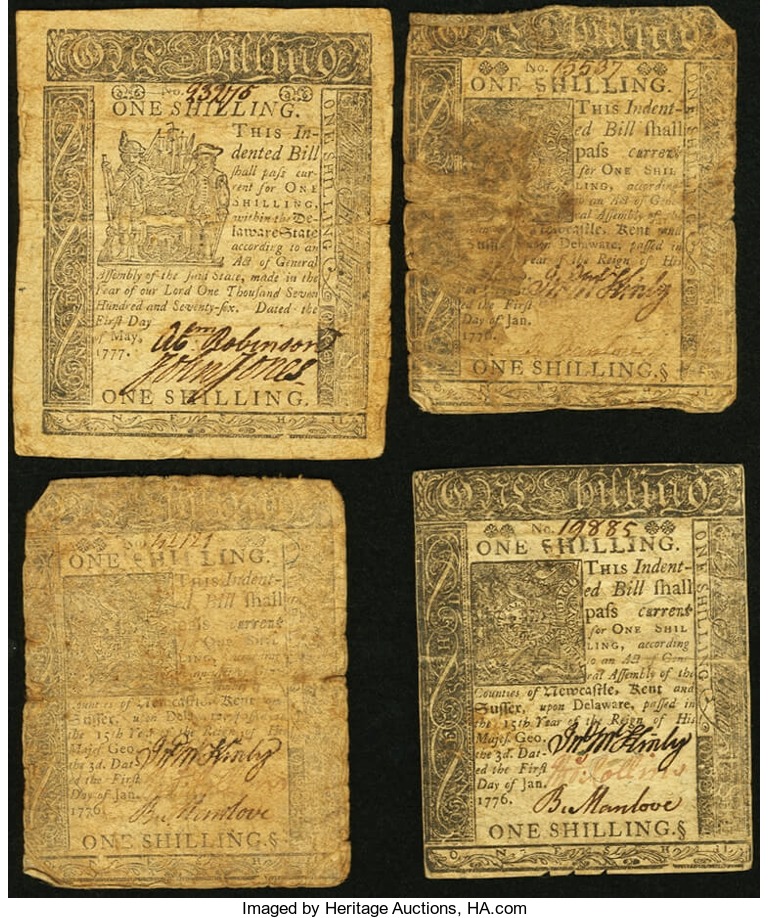 One Shilling
No. 93275
ONE SHILLING.
THIS In-
dented Bill
shall pass cur-
rent for ONE
SHILLING,
within the De-
laware State
according to an
Act of General
Assembly of the said State, made in the
Year of our Lord One Thousand Seven
Hundred and Seventy-six. Dated the
First Day
of May,
1777.
Robinson
John Jones
ONE SHILLING.
ONE SHILLING
One Shilling
No. 15537
ONE SHILLING.
THIS Indent-
ed Bill shall
pass current
for ONE SHIL
LING, according
to an Act of Gen-
eral Assembly of the
Newcastle, Kent and
Sussex, upon Delaware, passed in
Year of the Reign of His
Jno McKinly
ed the First
Day of Jan.
1776.
ONE SHILLING.§
ONE SHILLING
ONE SHILLING.
THIS Indent-
Bill shall
pass current
ONE SHIL
Counties of Newcastle, Kent and
Sussex, upon Delaware, passed
the 15th Year of the Reign of His
Majes. Geo.
the 3d. Dat-
ed the First
Day of Jan.
1776.
Jno McKinly
B. Manlove
ONE SHILLING.§
One Shilling
No. 19885
ONE SHILLING.
THIS Indent-
ed Bill shall
pass current
for ONE SHIL
LING, according
to an Act of Gen-
eral Assembly of the
Counties of Newcastle, Kent and
Sussex, upon Delaware, passed in
the 15th Year of the Reign of His
Majes. Geo.
the 3d. Dat-
ed the First
Day of Jan.
1776.
Jno McKinly
Collins
B. Manlove
ONE SHILLING.§
ONE SHILLING
Imaged by Heritage Auctions, HA.com